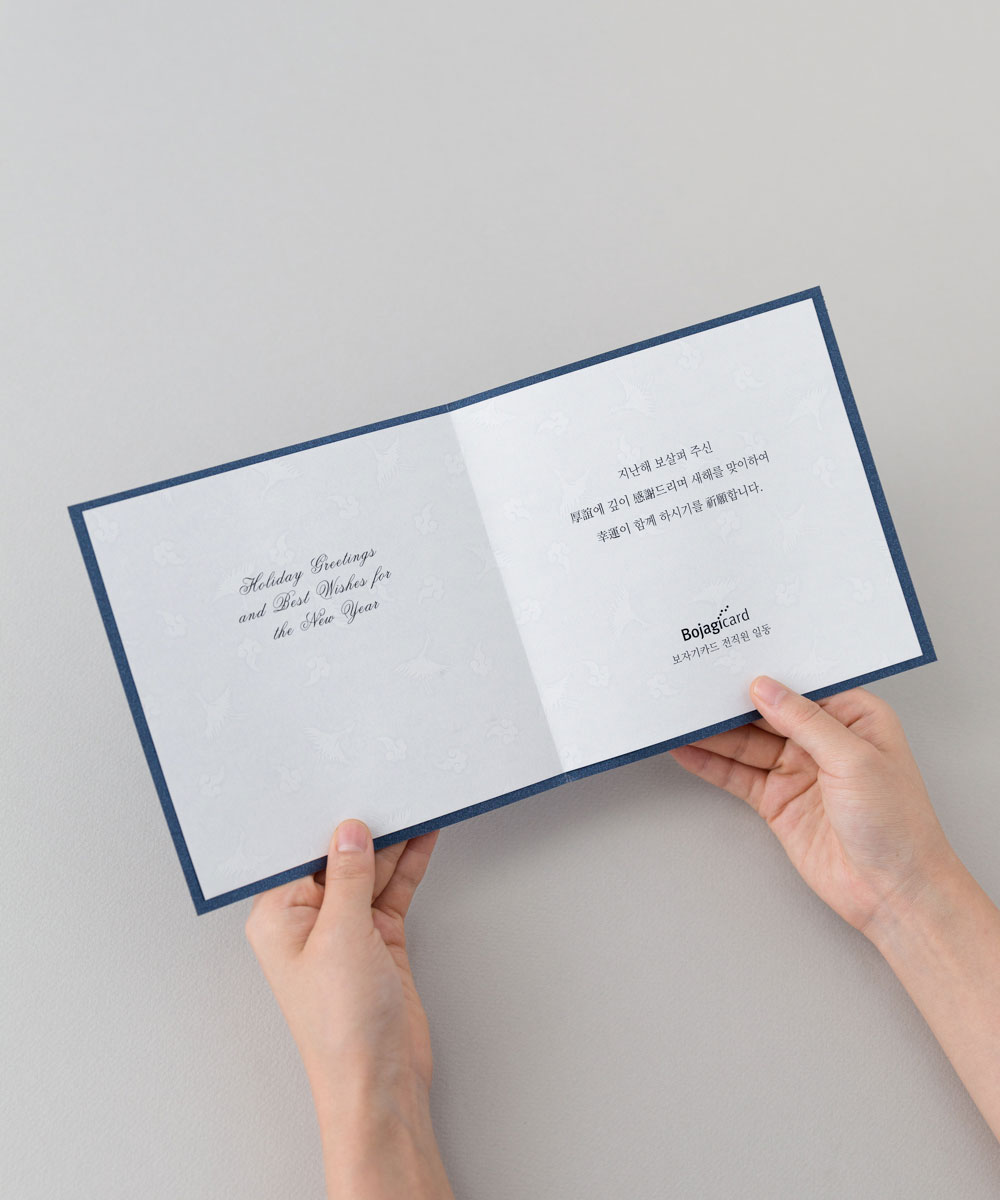 Holiday Greetings
and Best Wishes for
the New Year
지난해 보살펴 주신
厚誼에 깊이 感謝드리며 새해를 맞이하여
幸運이 함께 하시기를 祈願합니다.
Bojagicard
보자기카드 전직원 일동